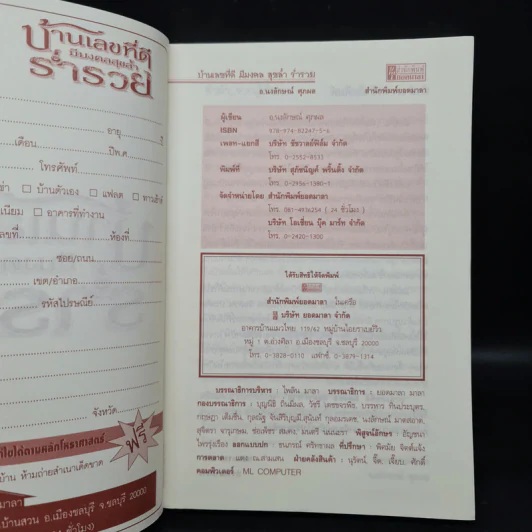 บ้านเลขที่ดี
มีมงคลสุขล้ำ
ร่ำรวย
อายุ ปี
เดือน ปีพ.ศ
โทรศัพท์
เช่า □ บ้านตัวเอง □ แฟลต □ ทาวเฮ้าส์
□ อาคารที่ทำงาน
ห้องที่
ซอย/ถนน
เขต/อำเภอ
รหัสไปรษณีย์
จังหวัด
ฟรี
บ้าน ห้ามถ่ายสำเนาเด็ดขาด
บ้านสวน อ.เมืองชลบุรี จ.ชลบุรี 20000
บ้านเลขที่ดี มีมงคล สุขล้ำ ร่ำรวย
สำนักพิมพ์
ยอดมาลา
อ.นงลักษณ์ ศุภผล สำนักพิมพ์ยอดมาลา
ผู้เขียน อ.นงลักษณ์ ศุภผล
ISBN 978-974-82347-5-6
เพลท-แยกสี บริษัท ชัชวาลย์ฟิล์ม จำกัด
โทร. 0-2552-8533
พิมพ์ที่ บริษัท สุภัชนิญค์ พริ้นติ้ง จำกัด
โทร. 0-2936-1380-1
จัดจำหน่ายโดย สำนักพิมพ์ยอดมาลา
โทร. 081-4936254 ( 24 ชั่วโมง )
บริษัท โลเชี่ยน บุ๊ค มาร์ท จำกัด
โทร. 0-2420-1300
ได้รับสิทธิ์ให้จัดพิมพ์
สำนักพิมพ์ยอดมาลา ในเครือ
บริษัท ยอดมาลา จำกัด
อาคารบ้านแมวไทย 119/62 หมู่บ้านไอยราเมธีวิว
หมู่ 1 ต.อ่างศิลา อ.เมืองชลบุรี จ.ชลบุรี 20000
โทร. 0-3828-0110 แฟกซ์. 0-3879-1314
บรรณาธิการบริหาร : ไพลิน มาลา บรรณาธิการ : ยอดมาลา มาลา
กองบรรณาธิการ : บุญนิธิ ยืนมีผล, วัชรี เดชขจรพีช, บรรหาร หินประบุตร,
กฤษฎา เต็มชื่น, กุลณัฐ จันสิริบุญมี,สุนันท์ กุลอมรเดช, นงลักษณ์ มาตสอาด,
สุจิตรา จารุเกษม, ช่อเพ็ชร สมคง, มนตรี นนนอรา พิสูจน์อักษร : ธัญชนา
ไพรรุ่งเรือง ออกแบบปก : ธนภรณ์ ศรีทยาผล ที่ปรึกษา : พิศมัย จิตต์แจ้ง
การตลาด : แดง ณ.สามแสน ฝ่ายคลังสินค้า : นุรัตน์, จี๊ด, เจี๊ยบ, ศักดิ์
คอมพิวเตอร์ : ML COMPUTER